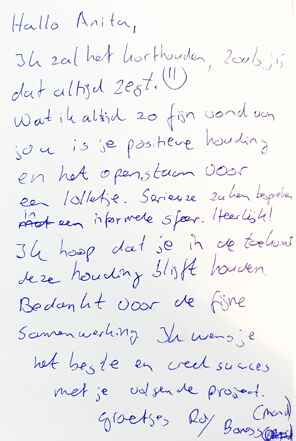 Hallo Anita,
Ik zal het korthouden, zoals jij
dat altijd zegt. (!!)
Wat ik altijd zo fijn vond van
jou is je positieve houding
en het openstaan voor
een lolletje. Serieuze zaken bespreken
in een informele sfeer. Heerlijk!
Ik hoop dat je in de toekomst
deze houding blijft houden.
Bedankt voor de fijne
samenwerking Ik wens je
het beste en veel succes
met je volgende project.
Groetjes Roy